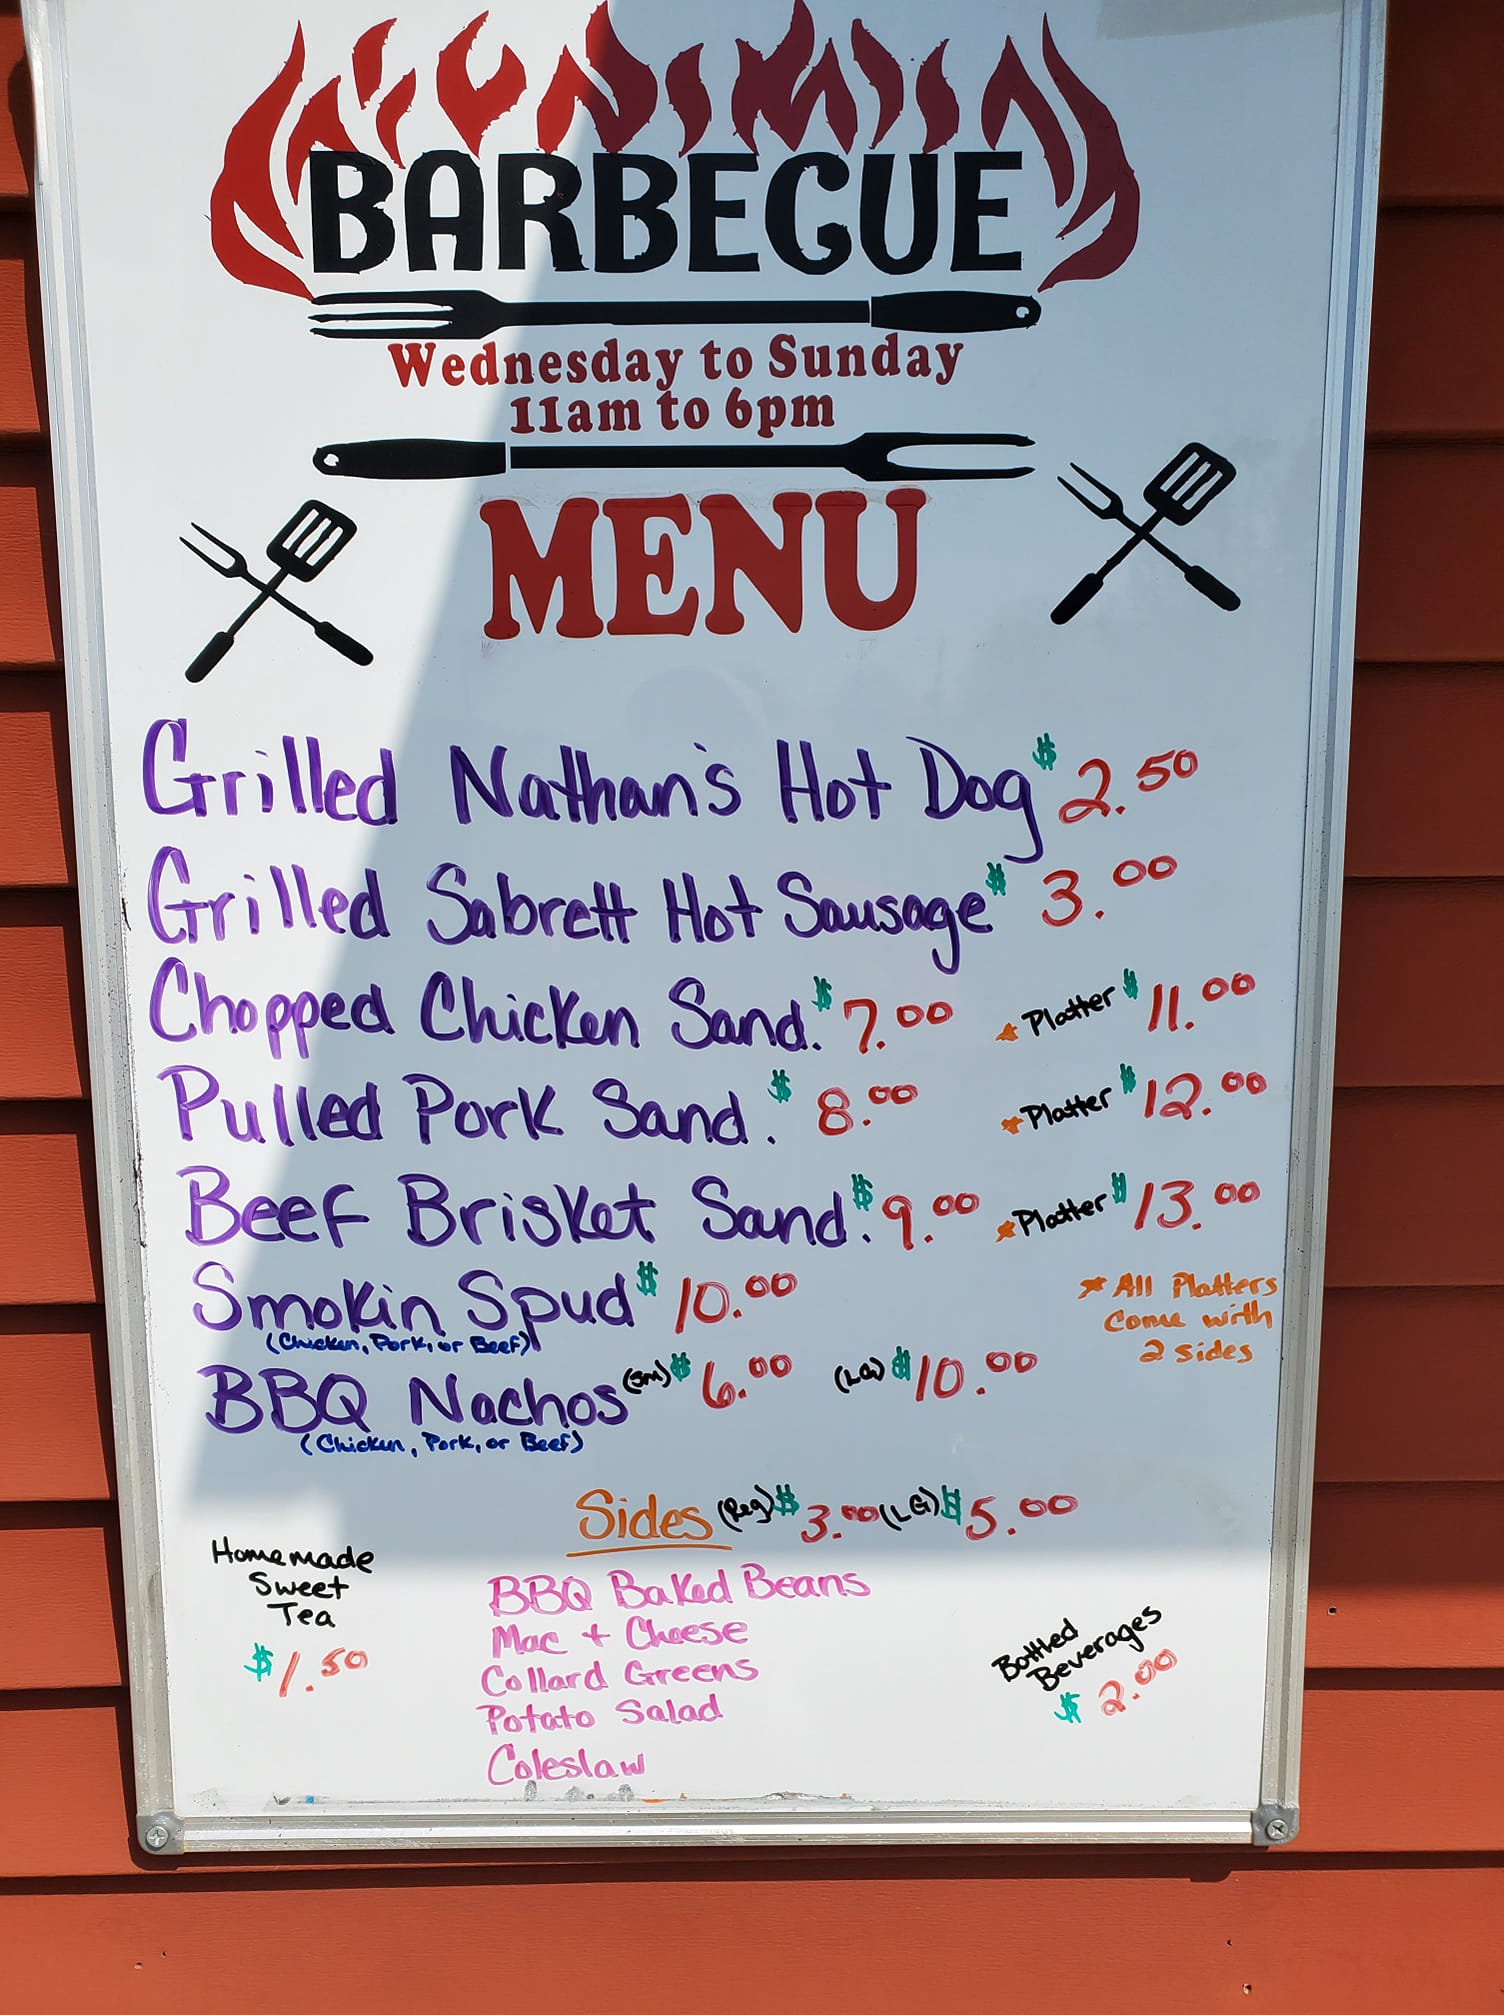 BARBECUE
Wednesday to Sunday
11am to 6pm
MENU
Grilled Nathan's Hot Dog $2.50
Grilled Sabrett Hot Sausage $3.00
Chopped Chicken Sand. $7.00 *Platter $11.00
Pulled Pork Sand. $8.00 *Platter $12.00
Beef Brisket Sand. $9.00 *Platter $13.00
Smokin Spud $10.00
(Chicken, Pork, or Beef)
* All Platters
Come with
2 sides
BBQ Nachos (sm) $6.00 (LG) $10.00
(Chicken, Pork, or Beef)
Sides (Reg) $3.00 (LG) $5.00
BBQ Baked Beans
Mac + Cheese
Collard Greens
Potato Salad
Coleslaw
Homemade
Sweet
Tea
$1.50
Bottled
Beverages
$2.00